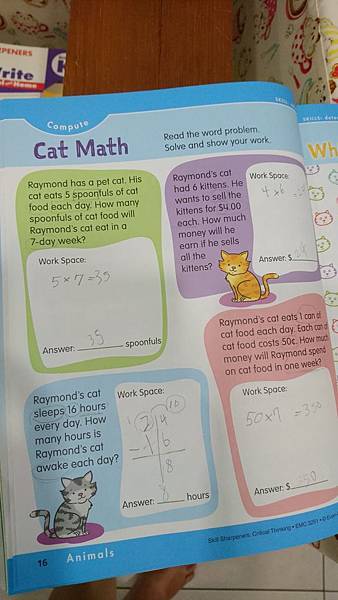 PENERS
rite
Home
Compute
Cat Math
Read the word problem.
Solve and show your work.
Raymond has a pet cat. His
cat eats 5 spoonfuls of cat
food each day. How many
spoonfuls of cat food will
Raymond's cat eat in a
7-day week?
Work Space:
5×7=35
35
Answer: spoonfuls
Raymond's cat
had 6 kittens. He
wants to sell the
kittens for $4.00
each. How much
money will he
earn if he sells
all the
kittens?
Work Space:
4×6
Answer: $
Raymond's cat
sleeps 16 hours
every day. How
many hours is
Raymond's cat
awake each day?
Work Space:
2 4
- 1 6
8
8
Answer: hours
Raymond's cat eats 1 can of
cat food each day. Each can of
cat food costs 50¢. How much
money will Raymond spend
on cat food in one week?
Work Space:
50×7 =350
350
Answer: $
16 Animals
Skill Sharpeners: Critical Thinking • EMC 3251 •
SKILLS:
Wh